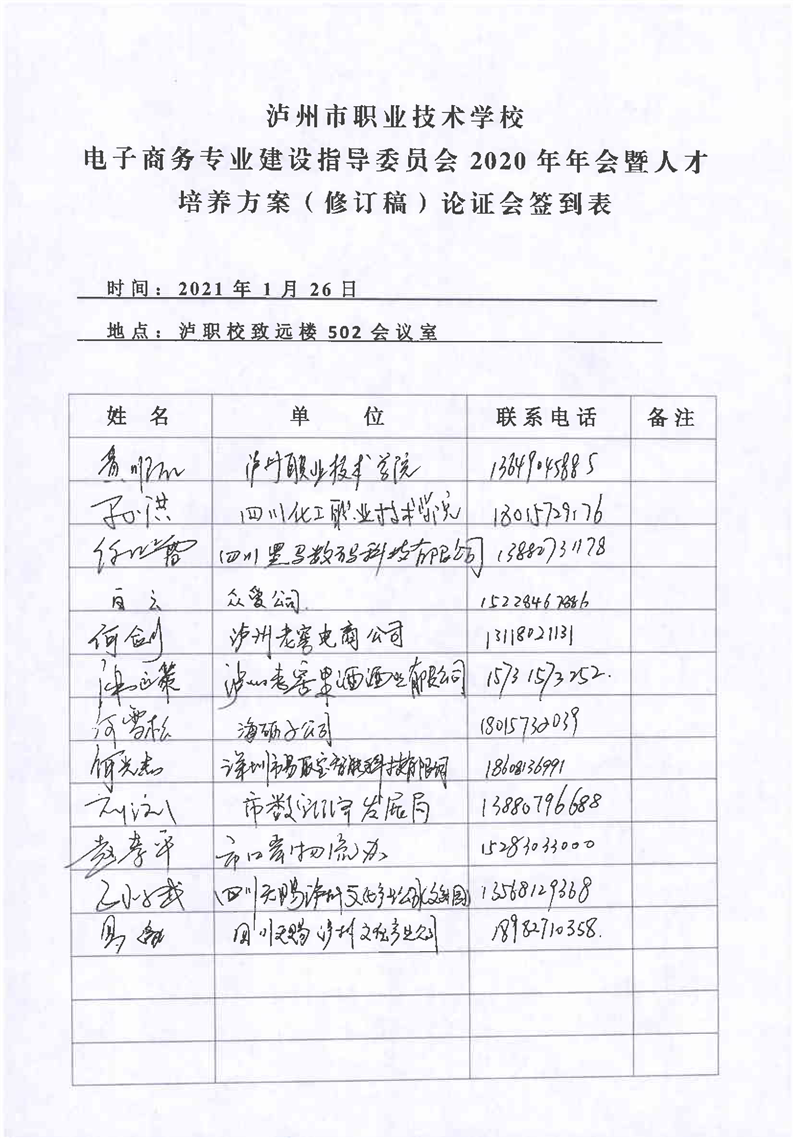 泸州市职业技术学校
电子商务专业建设指导委员会 2020 年年会暨人才
培养方案（修订稿）论证会签到表
时间：2021 年 1 月 26 日
地点：泸职校致远楼 502 会议室
姓 名 单 位 联系电话 备注
泸州职业技术学院 13649045885
孙洪 四川化工职业技术学院 18015729176
四川黑马数码科技有限公司 13882731178
百云 众爱公司. 15228467886
何剑 泸州老窖电商公司 13118021131
泸州老窖果酒酒业有限公司 15731573252.
何雪松 公司 18015730039
何光志 深圳市易联宝 科技有限公司 18608136991
市数字经济发展局 13880796688
赵孝平 市口岸物流办 15283033000
四川天赐泸州文化产业公司 13568129368
马 四川天赐泸州文化产业公司 18982710358.